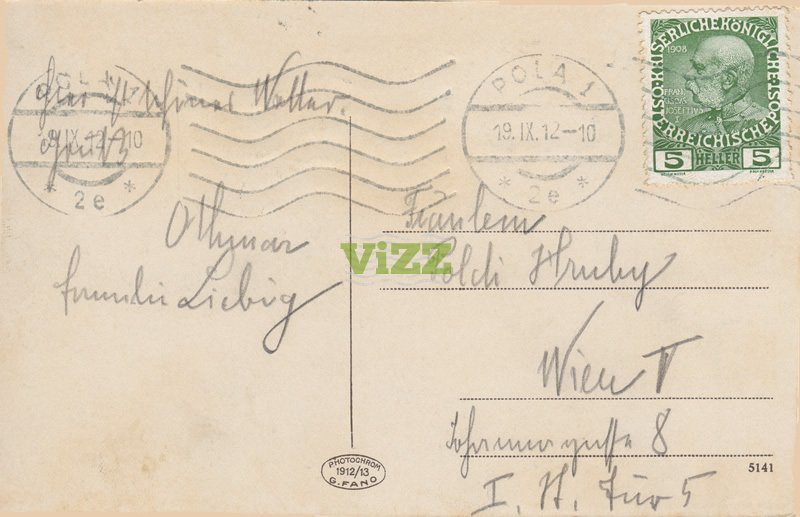 Hier ist schönes Wetter.
Othmar
Familie Liebig
POLA 1
19.IX.12-10
* 2e *
POLA 1
19.IX.12-10
* 2e *
KAISERLICHE KÖNIGLICHE
ÖSTERREICHISCHE POST
1908
5 HELLER 5
ViZZ
Fräulein
Poldi Hruby
Wien V
8
I. St. Tür 5
PHOTOCHROM
1912/13
G. FANO
5141